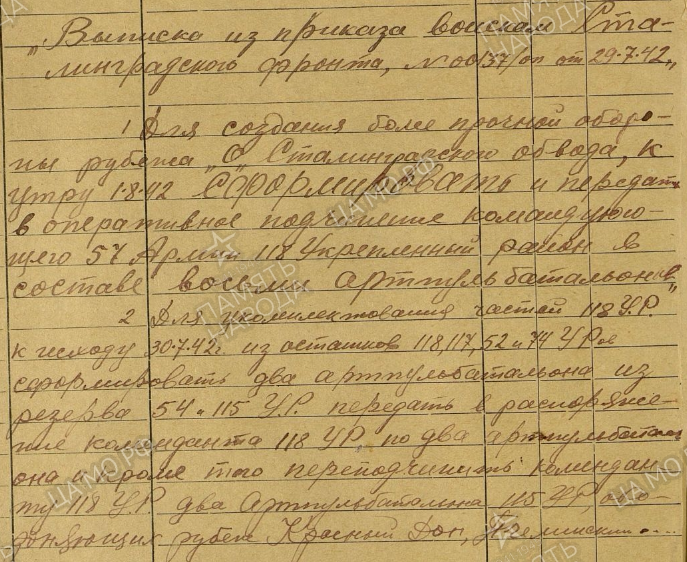 „Выписка из приказа войскам Ста-
линградского фронта, № 00137/оп от 29.7.42„
1 Для создания более прочной оборо-
ны рубежа „О„ Сталинградского обвода, к
утру 1.8.42 Сформировать и передать
в оперативное подчинение командую-
щего 57 Армии 118 Укрепленный район в
составе восьми артпульбатальонов„
2 Для укомплектования частей 118 У.Р.
к исходу 30.7.42г. из остатков 118, 117, 52 и 74 УР-в
сформировать два артпульбатальона из
резерва 54 и 115 У.Р. передать в распоряже-
ние коменданта 118 УР, по два артпульбатали
она и кроме того переподчинить комендан-
ту 118 У.Р. два Артпульбатальона 115 УР, обо-
роняющих рубеж Красный Дон,
ЦАМО.РФ
ПАМЯТЬ
НАРОДА